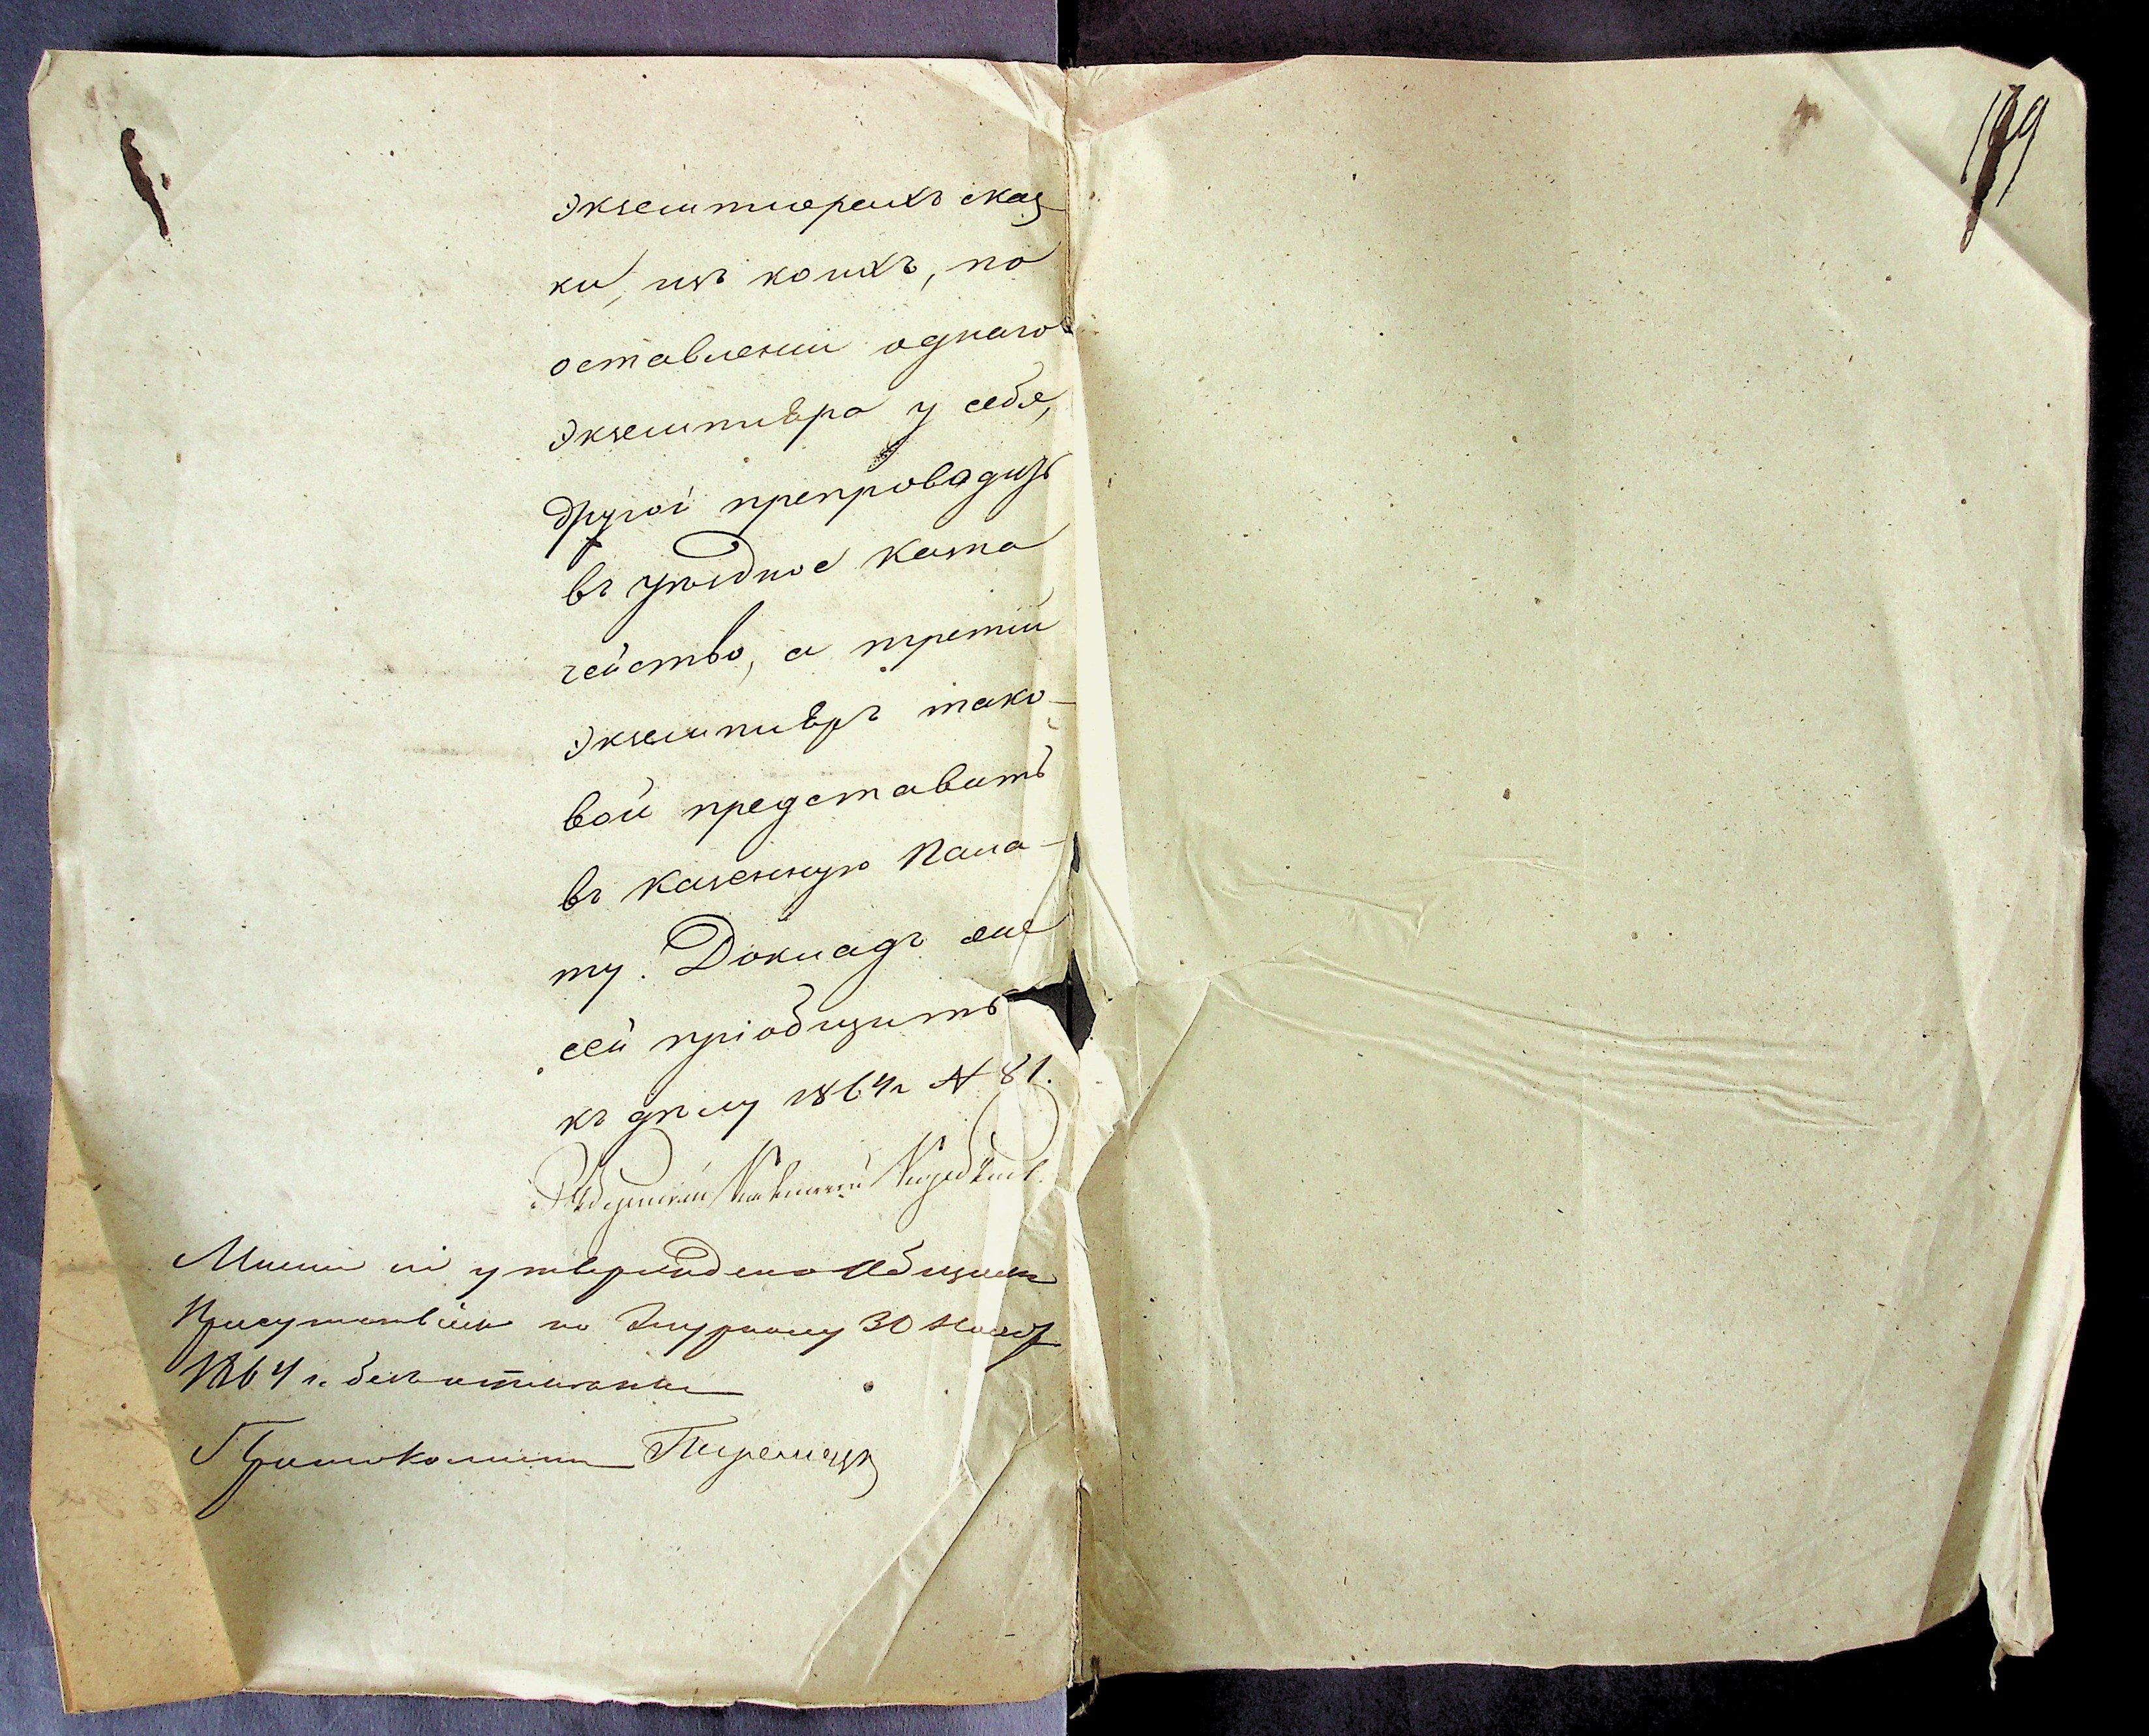 экземплярахъ сказ-
ки, изъ коихъ, по
оставленіи однаго
экземпляра у себя,
другой препроводить
въ уѣздное казна
чейство, а третій
экземпляръ тако-
вой представить
въ Казенную Пала-
ту. Докладъ же
сей пріобщить
къ дѣлу 1864 г. № 81.
Мнѣніе сіе утверждено Общимъ
Присутствіемъ по Журналу 30 Нояб
1864 г.
Протоколистъ
199